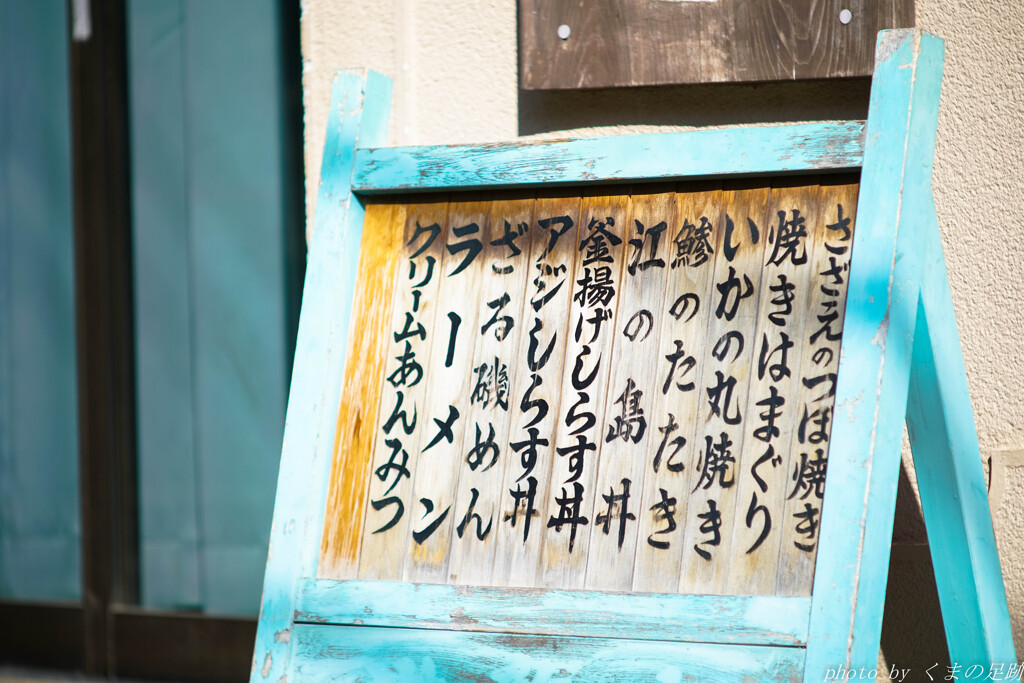 さざえのつぼ焼き
焼きはまぐり
いかの丸焼き
鯵のたたき
江の島丼
釜揚げしらす丼
アジシしらす丼
ざる磯めん
ラーメン
クリームあんみつ
photo by くまの足跡